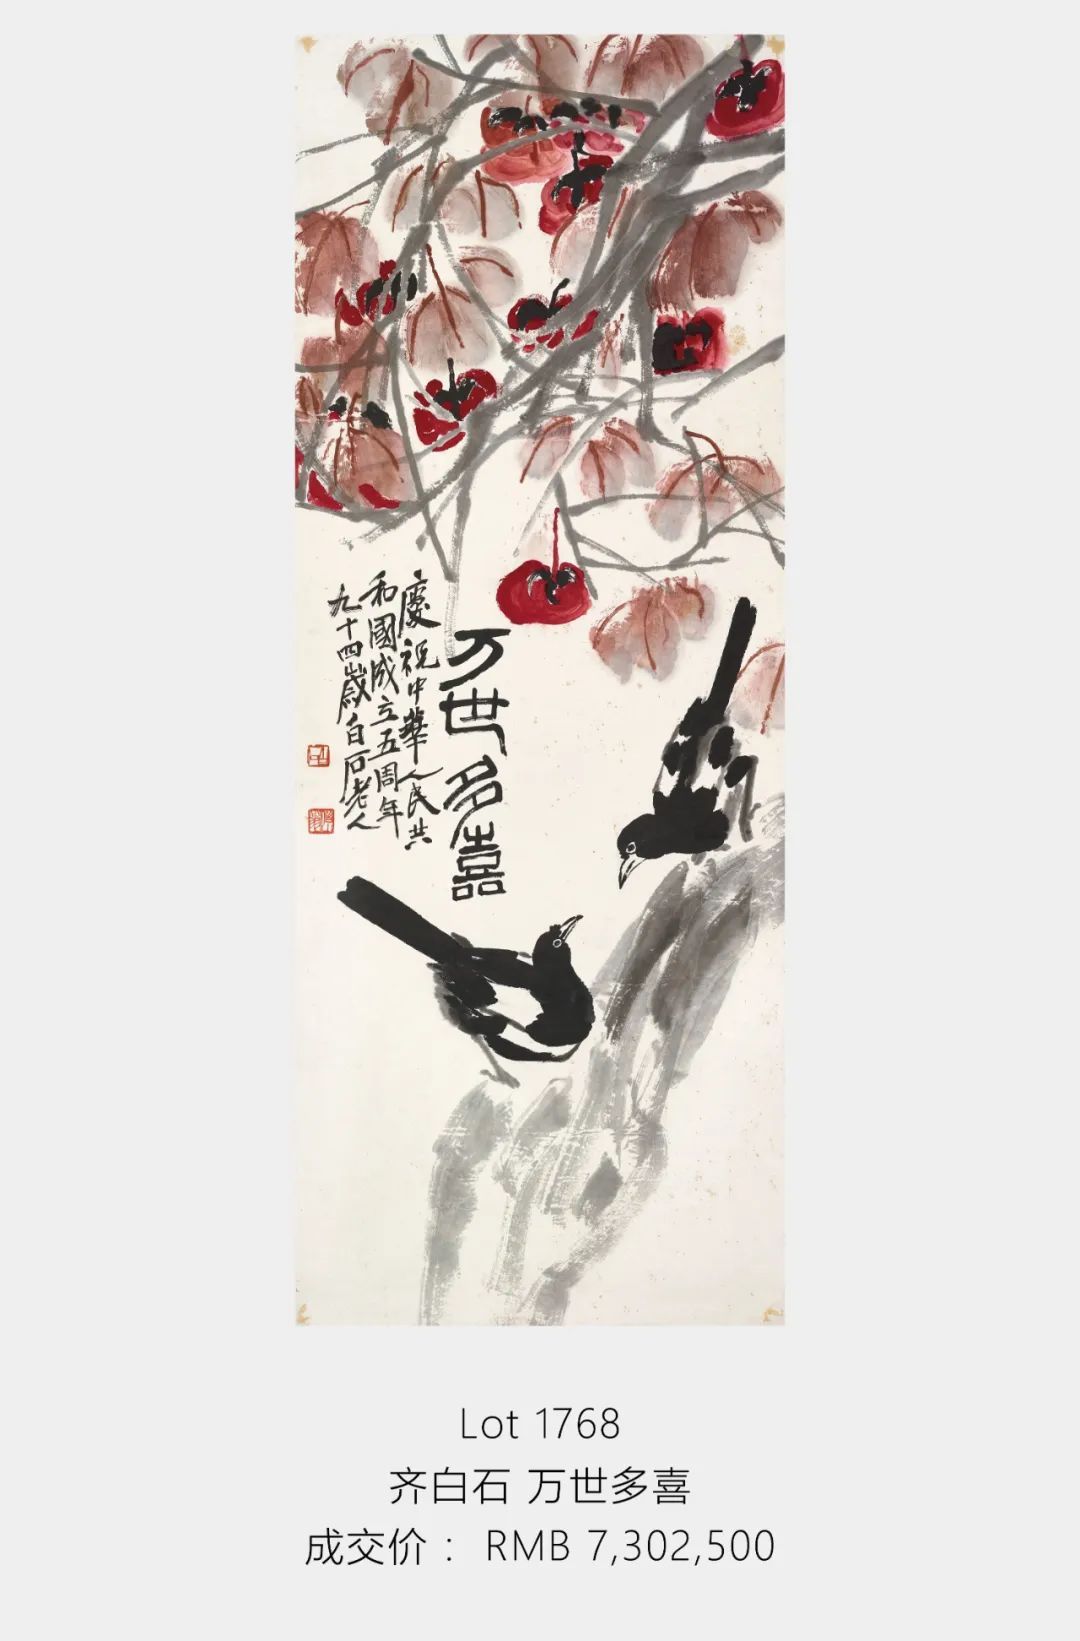 万世多喜
慶祝中華人民共
和國成立五周年
九十四歲白石老人
Lot 1768
齐白石 万世多喜
成交价： RMB 7,302,500